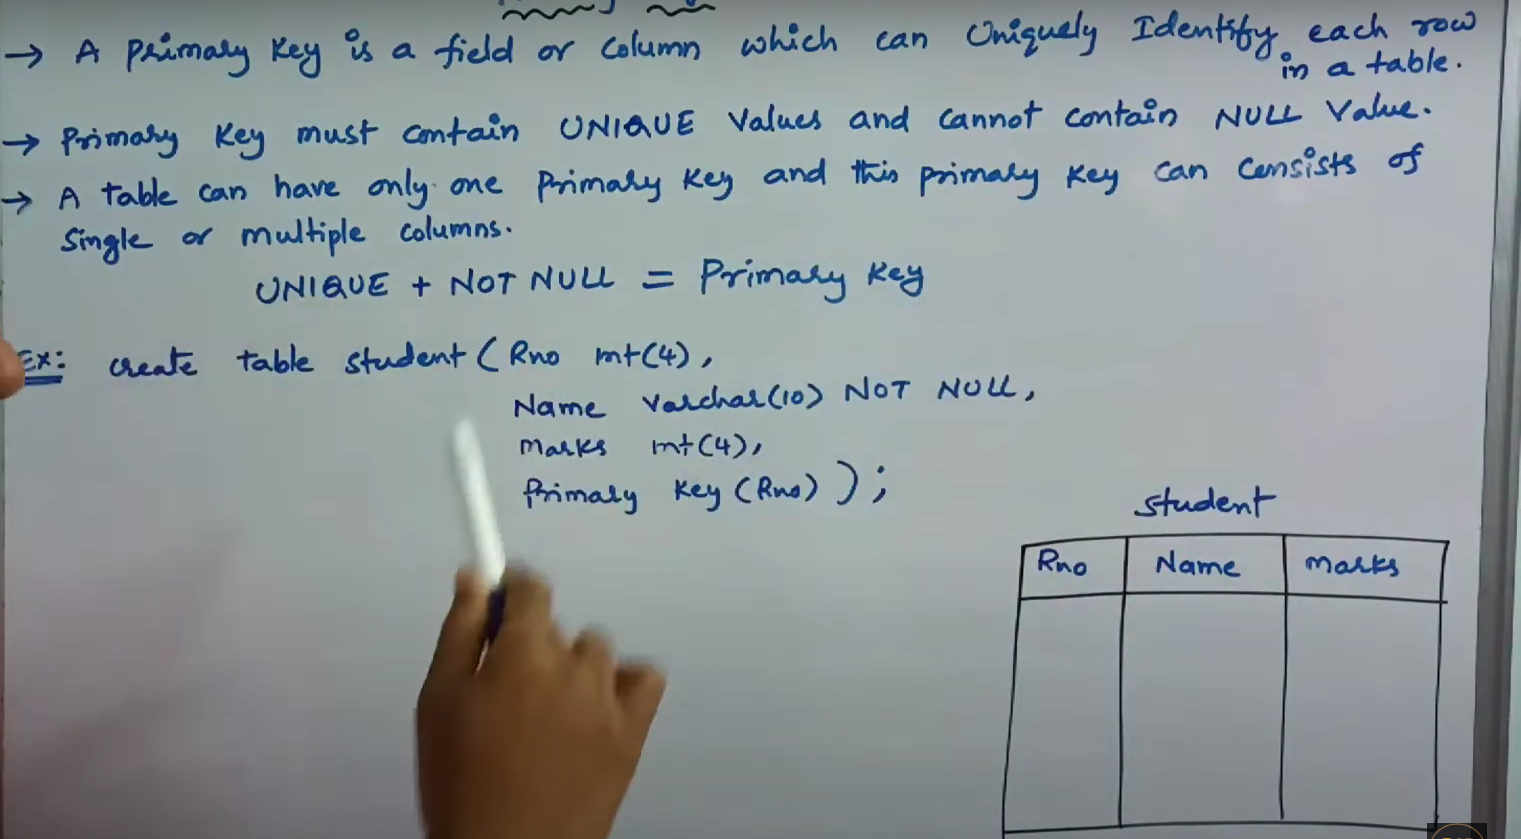 → A Primary Key is a field or column which can Uniquely Identify each row
in a table.
→ Primary Key must contain UNIQUE Values and cannot contain NULL Value.
→ A table can have only one Primary Key and this primary Key can consists of
single or multiple columns.
UNIQUE + NOT NULL = Primary Key
EX: create table student ( Rno int(4),
Name Varchar(10) NOT NULL,
Marks int(4),
Primary Key (Rno) ) ;
student
Rno Name Marks